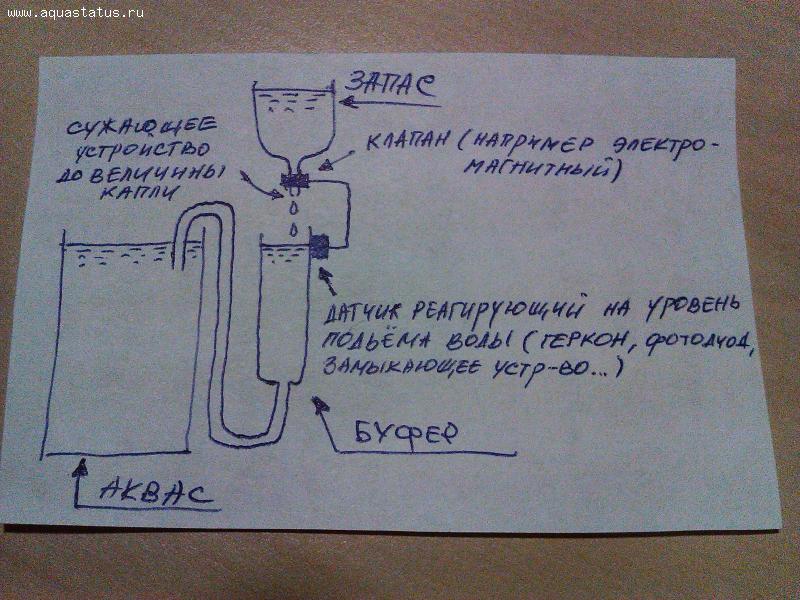 www.aquastatus.ru
ЗАПАС
СУЖАЮЩЕЕ
УСТРОЙСТВО
ДО ВЕЛИЧИНЫ
КАПЛИ
КЛАПАН (НАПРИМЕР ЭЛЕКТРО-
МАГНИТНЫЙ)
ДАТЧИК РЕАГИРУЮЩИЙ НА УРОВЕНЬ
ПОДЬЁМА ВОДЫ (ГЕРКОН, ФОТОДИОД,
ЗАМЫКАЮЩЕЕ УСТР-ВО...)
БУФЕР
АКВАС